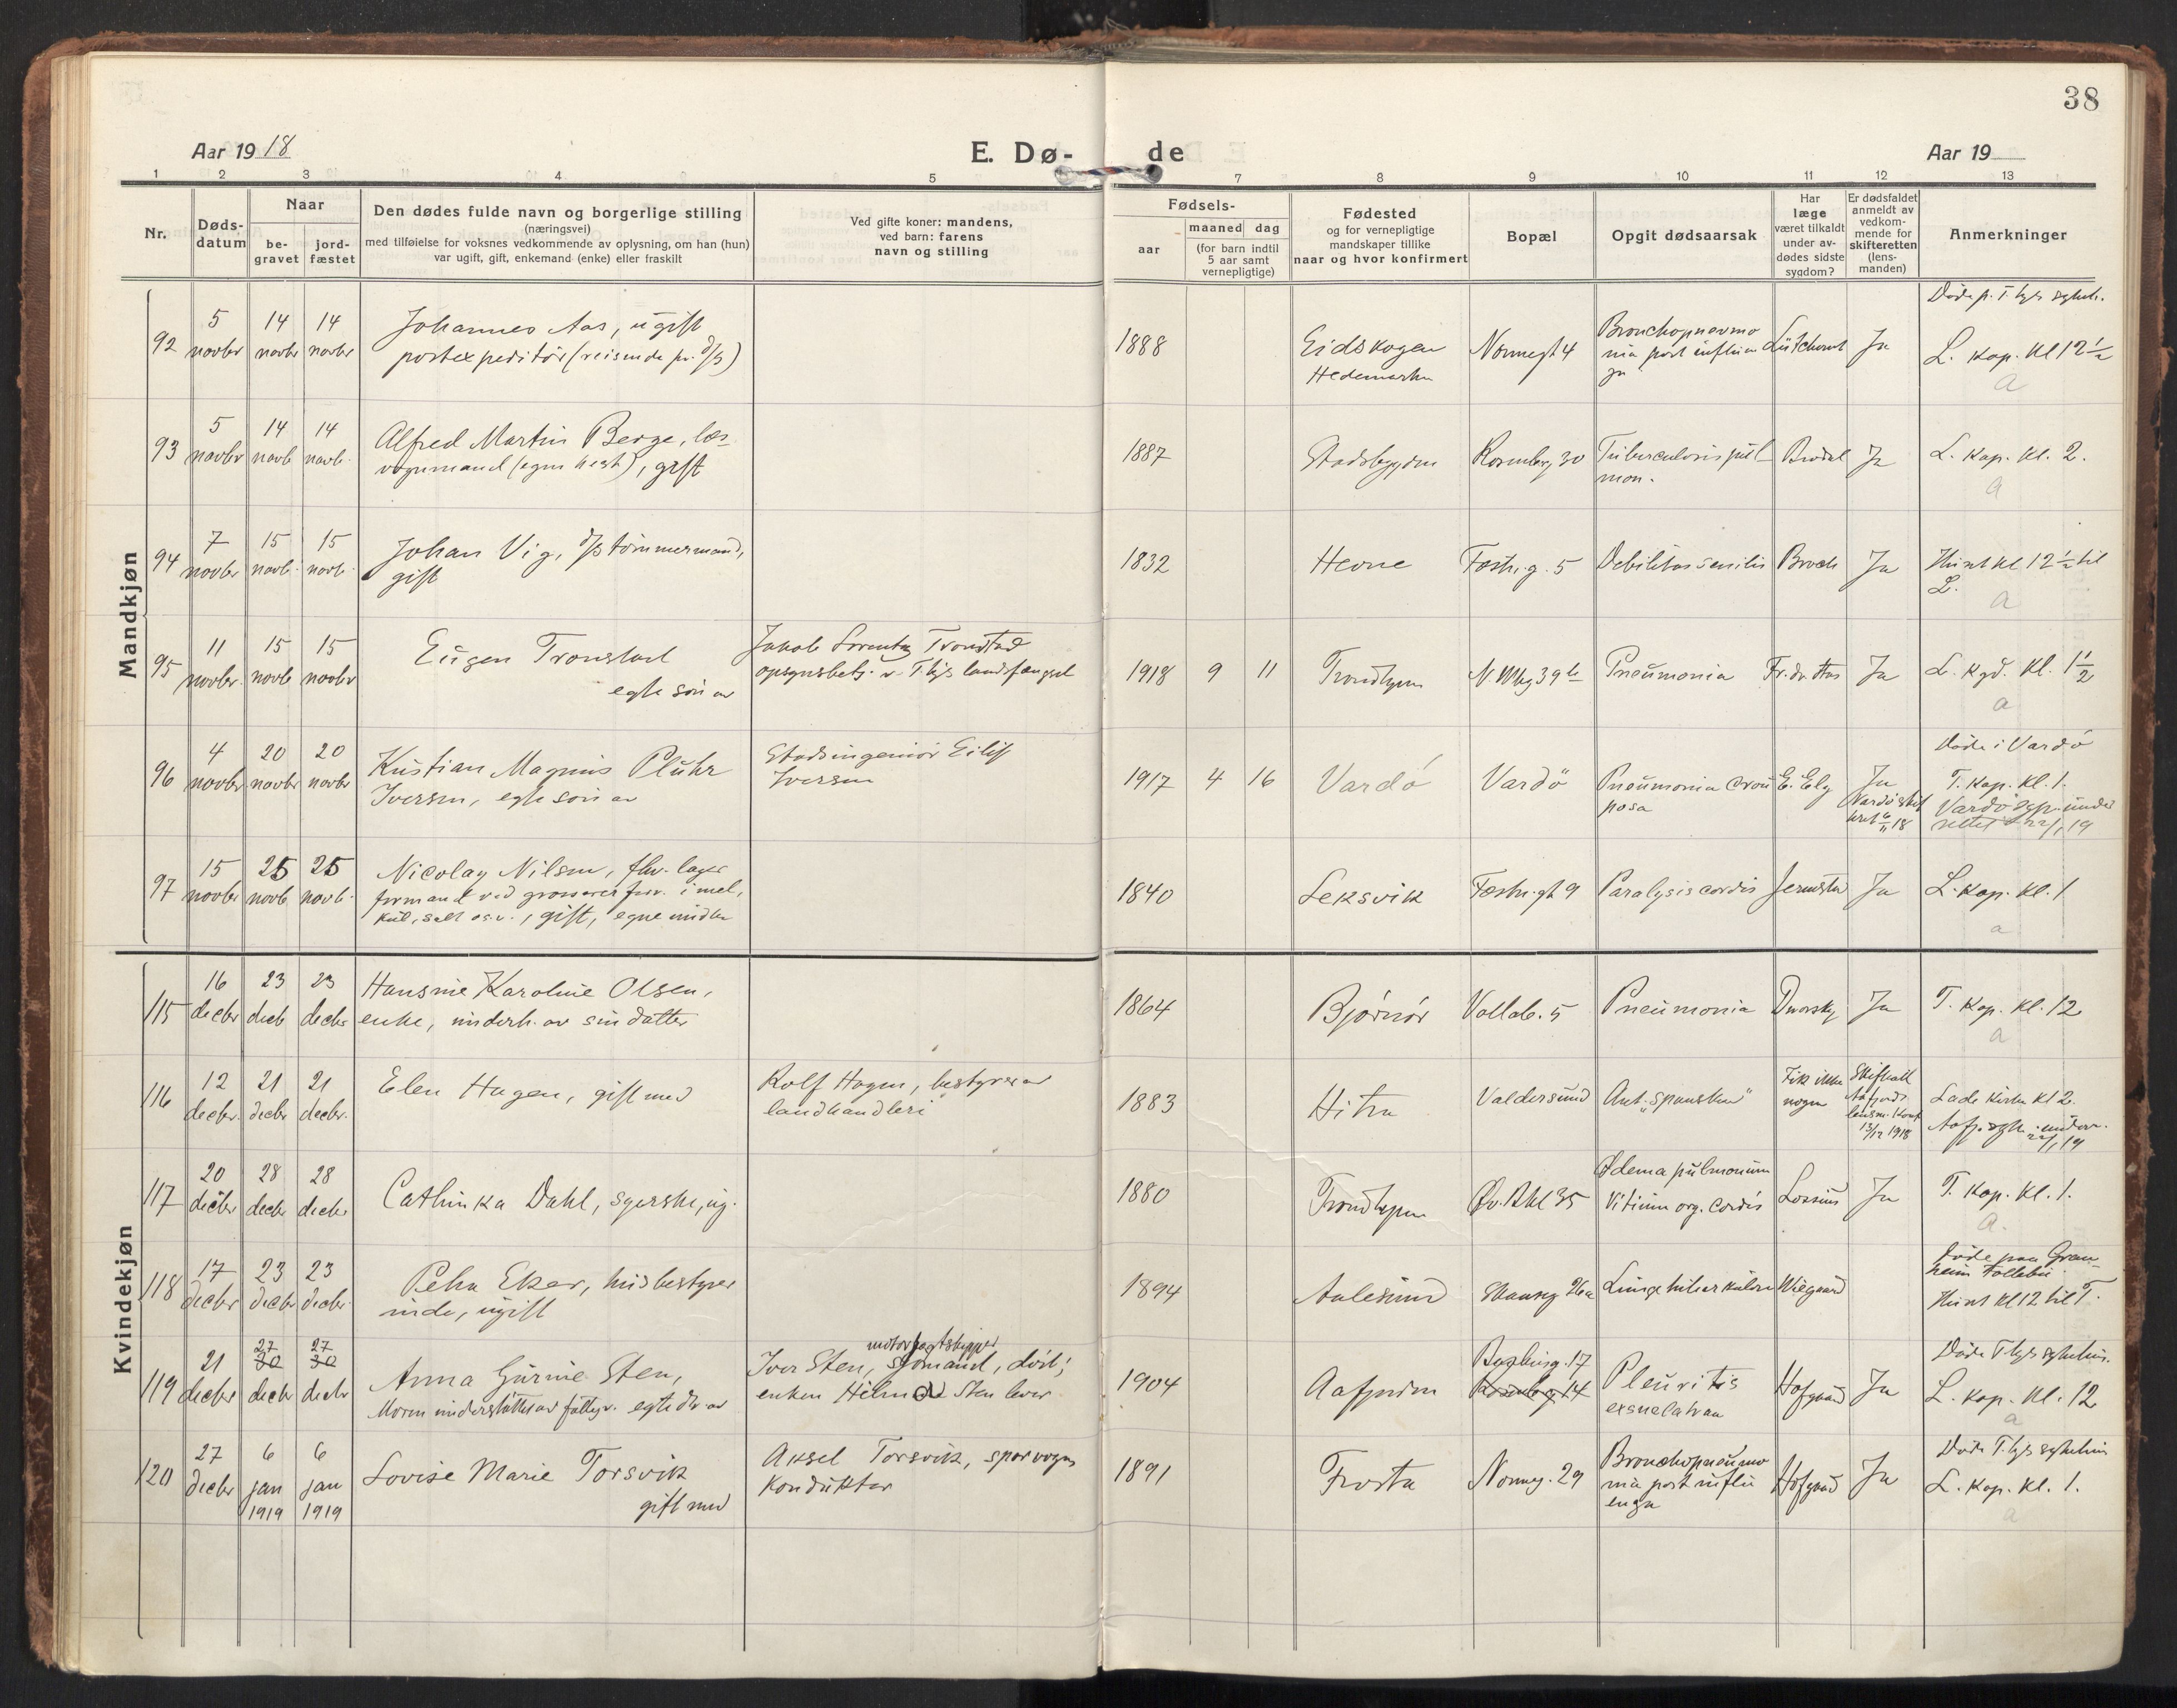 38
Aar 1918
E. Dø-
de
Aar 19
1 2 3 4 5 7 8 9 10 11 12 13
Nr.
Døds-
datum
Naar
be-
gravet
jord-
fæstet
Den dødes fulde navn og borgerlige stilling
(næringsvei)
med tilføielse for voksnes vedkommende av oplysning, om han (hun)
var ugift, gift, enkemand (enke) eller fraskilt
Ved gifte koner: mandens,
ved barn: farens
navn og stilling
Fødsels-
aar
maaned dag
(for barn indtil
5 aar samt
vernepligtige)
Fødested
og for vernepligtige
mandskaper tillike
naar og hvor konfirmert
Bopæl
Opgit dødsaarsak
Har
læge
været tilkaldt
under av-
dødes sidste
sygdom?
Er dødsfaldet
anmeldt av
vedkom-
mende for
skifteretten
(lens-
manden)
Anmerkninger
Mandkjøn
92
5 14 14
novbr novbr novbr
Johannes Aas, ugift
postexpeditør (reisende
1888
Eidskogen
Hedemarken
Nonnegt 4
Bronchopnevmo
nia post influen
za
Lütcherath
Ja
L. kap. kl 12 1/2
a
93
5 14 14
novbr novb novb.
Alfred Martin Berge, læs
vognmand (egen hest), gift
1887
Stadsbygden
Rosenborg 30
Tuberculosis pul
mon.
Brodal
Ja
L. kap. kl. 2.
a
94
7 15 15
novbr novb. novb.
Johan Vig, d/s tømmermand,
gift
1832
Hevne
5
Debilitas senilis
Broch
Ja
Hust kl 12 1/2 til
L.
a
95
11 15 15
novbr. novb novbr
Eugen Tronstad
egte søn av
Jakob Lorentz Tronstad
opsynsbetj. v. T.hjs landsfængsel
1918 9 11
Trondhjem
Pneumonia
Fr. dr. Aas
Ja
L. kgd. kl. 1 1/2
a
96
4 20 20
novbr novbr novbr
Kristian Magnus Pluhr
Iversen, egte søn av
Stadsingeniør Eilif
Iversen
1917 4 16
Vardø
Vardø
Pneumonia crou
posa
E. Ely
Ja
Døde i Vardø
T. kap. kl. 1.
Vardø sgp. under
rettet 22/1 19
97
15 25 25
novbr novb novb.
Nicolay Nilsen, fhv. lager
formand ved grosserer firm. i mel,
kul, salt osv., gift, egne midler
1840
Leksvik
9
Paralysis cordis
Jernsta
Ja
L. kap. kl. 1
a
Kvindekjøn
115
16 23 23
decbr decb decbr
Hansine Karoline Olsen,
enke, underh. av sin datter
1864
Bjørnør
Vollab. 5
Pneumonia
Ja
T. kap. kl. 12
a
116
12 21 21
decbr. decbr decbr.
Elen Hagen, gift med
Rolf Hagen, bestyrer av
landhandleri
1883
Hitra
Valdersund
Ant. "spansken"
Fik ikke
nogen
13/12 1918
Lade kirke kl 2.
22/1 19
117
20 28 28
decbr decbr decbr
Cathinka Dahl, syerske, ug.
1880
Trondhjem
35
Ødema pulmonum
Vitium org. cordis
Lossius
Ja
T. kap. kl. 1.
a.
118
17 23 23
decbr decbr decbr.
Petra Eker, husbestyrer
inde, ugift
1894
Aalesund
26a
Lungetuberkulose
Wiegaard
Døde paa Gran-
heim Follebu
Hust kl 12 til T.
119
27 27
21 30 30
decbr decbr decbr
Anna Gurine Sten,
Moren understøttes av fattigv. egte dtr av
motorjagtskipper
Iver Sten, sjømand, død;
enken Helmine Sten lever
1904
Aafjorden
17
14
Pleuritis
exsudativa
Hofgaard
Ja
Døde T.hjs sykehus.
L. kap. kl. 12
a
120
27 6 6
decbr jan jan
1919 1919
Lovise Marie Torsvik
gift med
Aksel Torsvik, sporvogns
konduktør
1891
Frosta
Nonneg. 29
Bronchopneumo
nia post influ
enza
Hofgaard
Ja
Døde T.hjs sykehus
L. kap. kl. 1.
a